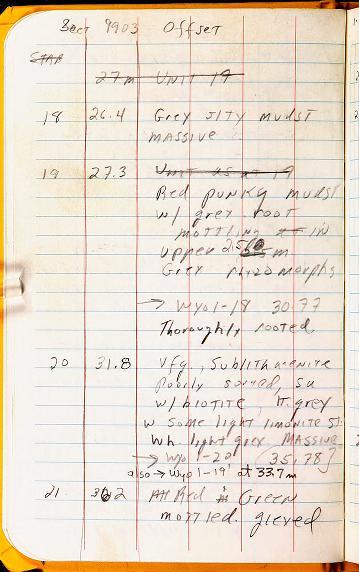 Sect 9903 Offset
STAR
27m UNIT 19
18 26.4 Grey slty mudst
massive
19 27.3 Unit as at 19
Red punky mudst
w/ grey root
mottling in
upper 2.5 m
Grey rhizomorphs
→ Wy01-18 30.77
Thoroughly rooted
20 31.8 Vfg, sublitharenite
Poorly sorted, SU
w/ biotite, lt. grey
w some light limonite st.
Wh. light grey. Massive
→ Wy01-20 (35.78)
also → Wy01-19 at 33.7m
21 362 Red Green
mottled. gleyed